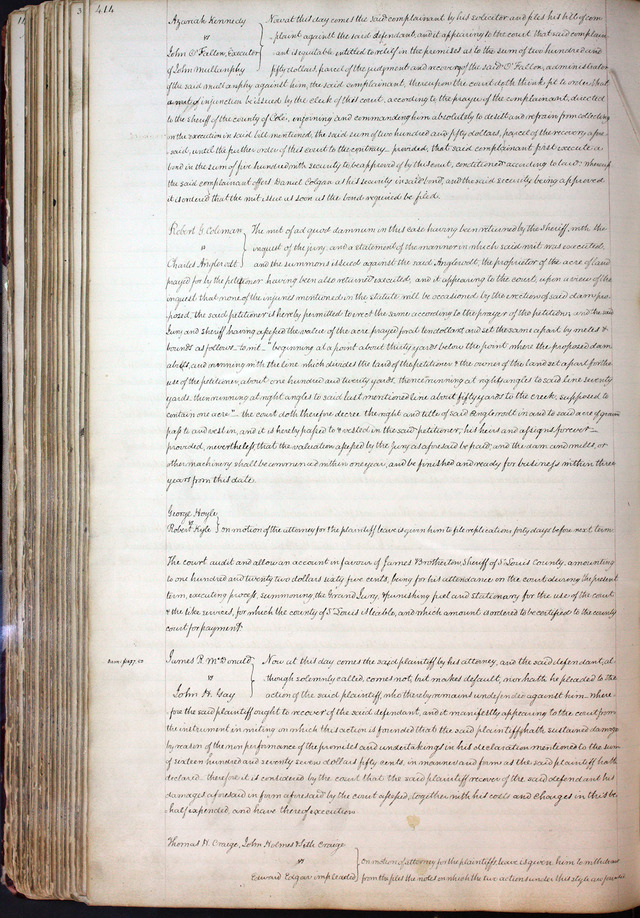 414
Azariah Kennedy
vs
John O'Fallon, Executor
of John Mullanphy
Now at this day comes the said complainant by his solicitor and files his bill of com-
plaint against the said defendant, and it appearing to the court that said complain-
ant is equitably entitled to relief in the premises as to the sum of two hundred and
fifty dollars, parcel of the judgment and recovery of the said O'Fallon, administrator
of the said Mullanphy against him, the said complainant, thereupon the court doth think fit to order that
a writ of injunction be issued by the clerk of this court, according to the prayer of the complainant, directed
to the sheriff of the county of Cole, injoining and commanding him absolutely to desist and refrain from collecting
on the execution in said bill mentioned, the said sum of two hundred and fifty dollars, parcel of the recovery afore
said, until the further order of this court to the contrary – provided, that said complainant first execute a
bond in the sum of five hundred with security to be approved of by this court, conditioned according to law: whereupon
the said complainant offers Daniel Colgan as his security in said bond, and the said security being approved
it is ordered that the writ issue as soon as the bond required be filed.
Robert G. Coleman
vs
Charles Anglerodt
The writ of ad quod damnum in this case having been returned by the sheriff, with the
inquest of the jury, and a statement of the manner in which said writ was executed,
and the summons issued against the said Anglerodt, the proprietor of the acre of land
prayed for by the petitioner having been also returned executed, and it appearing to the court, upon a view of the
inquest that none of the injuries mentioned in the statute will be occasioned by the erection of said dam pro-
posed, the said petitioner is hereby permitted to erect the same according to the prayer of the petition, and the said
Jury and sheriff having assessed the value of the acre prayed for at ten dollars and set the same apart by metes &
bounds as follows to wit – "beginning at a point about thirty yards below the point where the proposed dam
abutts, and running with the line which divides the land of the petitioner & the owner of the land set apart for the
use of the petitioner, about one hundred and twenty yards, thence running at right angles to said line seventy
yards, then running at right angles to said last mentioned line about fifty yards to the creek, supposed to
contain one acre" – the court doth therefore decree the right and title of said Anglerodt in and to said acre of ground
pass to and vest in, and it is hereby passed to & vested in the said petitioner, his heirs and assigns forever –
provided, nevertheless, that the valuation assessed by the Jury as aforesaid be paid, and the dam and mills, or
other machinery shall be commenced within one year, and be finished and ready for business within three
years from this date.
George Hoyle
vs
Robert Kyle
on motion of the attorney for the plaintiff leave is given him to file replication forty days before next term
The court audit and allow an account in favour of James Brotherton, Sheriff of St Louis County, amounting
to one hundred and twenty two dollars sixty five cents, being for his attendance on the court during the present
term, executing process, summoning the Grand Jury, & furnishing fuel and stationary for the use of the court
& the like services, for which the county of St Louis is liable, and which amount is ordered to be certified to the county
court for payment.
James R. McDonald
vs
John H. Gay
Now at this day comes the said plaintiff by his attorney, and the said defendant, al-
though solemnly called, comes not, but makes default, nor hath he pleaded to the
action of the said plaintiff, who thereby remains undefended against him. where-
fore the said plaintiff ought to recover of the said defendant, and it manifestly appearing to the court from
the instrument in writing on which this action is founded that the said plaintiff hath sustained damages
by reason of the non performance of the promises and undertakings in his declaration mentioned to the sum
of sixteen hundred and seventy seven dollars fifty cents, in manner and form as the said plaintiff hath
declared. therefore it is considered by the court that the said plaintiff recover of the said defendant his
damages aforesaid in form aforesaid by the court assessed, together with his costs and charges in this be-
half expended, and have thereof execution.
Thomas W. Craige, John Holmes & Seth Craige
vs
Edward Edgar impleaded
on motion of attorney for the plaintiffs, leave is given him to withdraw
from the files the notes on which the two actions under this style are founded